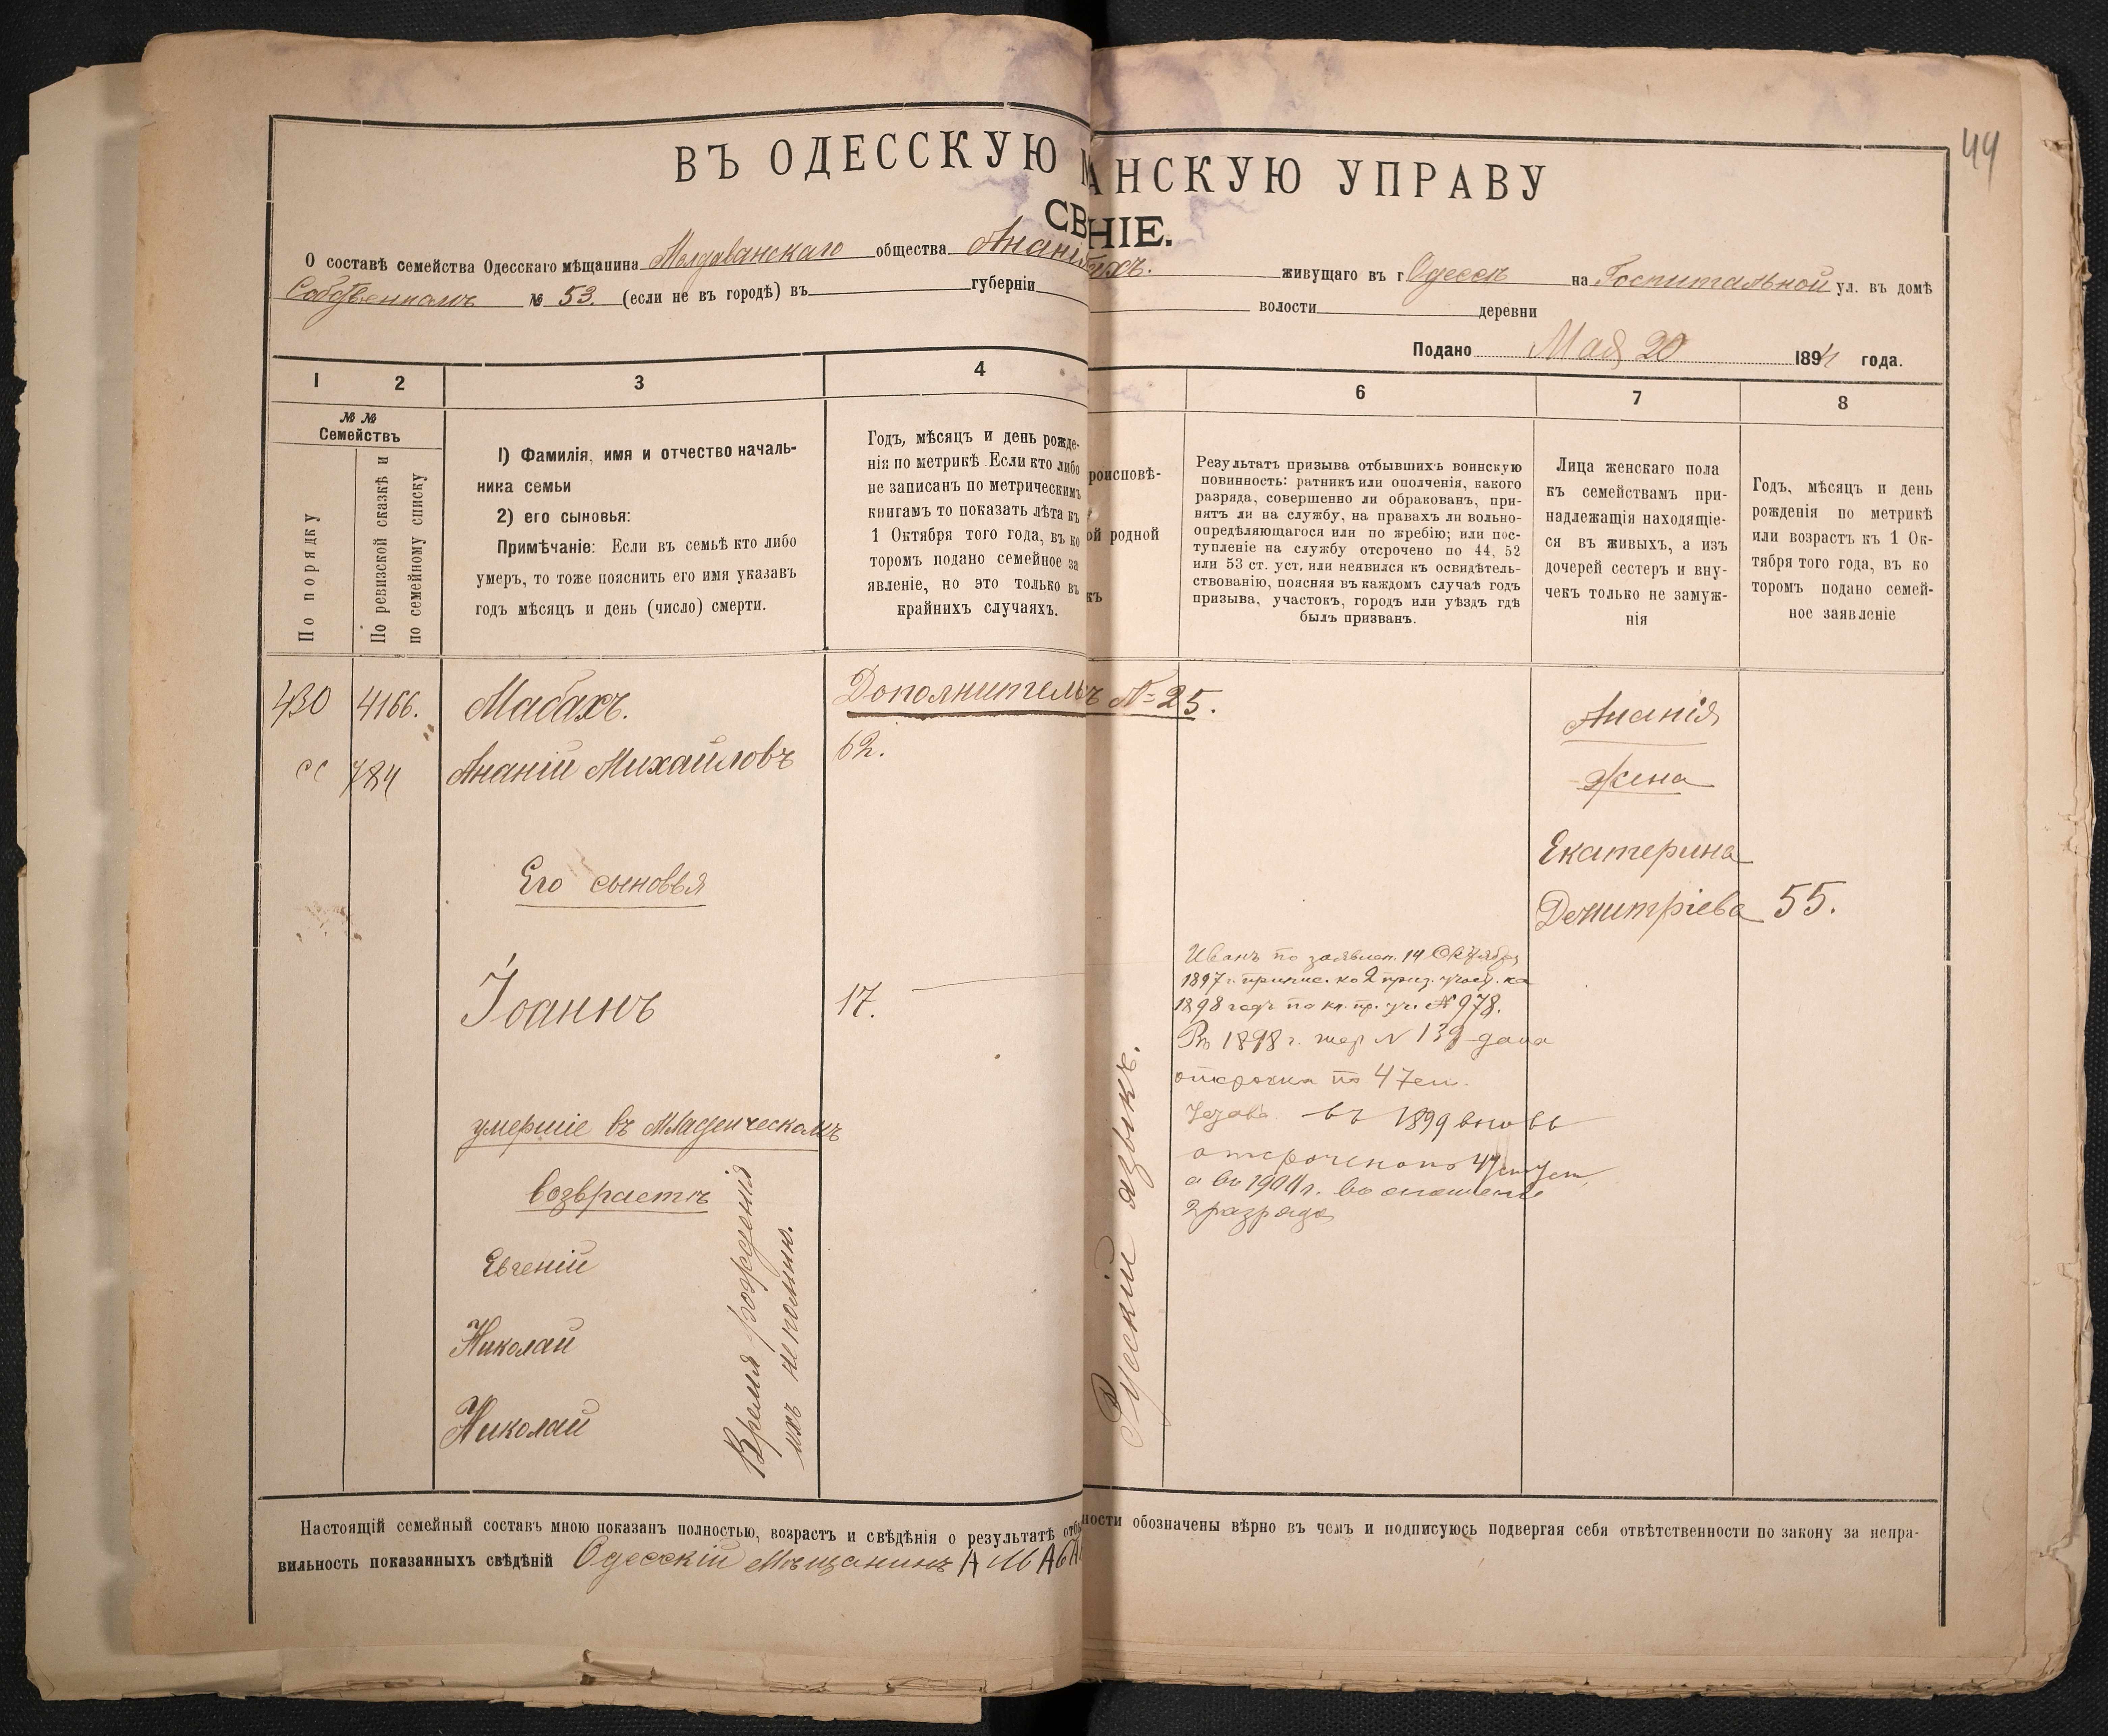 44
ВЪ ОДЕССКУЮ М АНСКУЮ УПРАВУ
СВ НІЕ.
О составѣ семейства Одесскаго мѣщанина Молдаванскаго общества Анані живущаго въ г Одессѣ на Госпитальной ул. въ домѣ
Собственномъ № 53. (если не въ городѣ) въ губерніи волости деревни
Подано Мая 20 1894 года.
1 2 3 4 6 7 8
№ №
Семействъ
По порядку
По ревизской сказкѣ и
по семейному списку
1) Фамилія, имя и отчество началь-
ника семьи
2) его сыновья:
Примѣчаніе: Если въ семьѣ кто либо
умеръ, то тоже пояснить его имя указавъ
годъ мѣсяцъ и день (число) смерти.
Годъ, мѣсяцъ и день рожде-
нія по метрикѣ. Если кто либо
не записанъ по метрическимъ
книгамъ то показать лѣта къ
1 Октября того года, въ ко
торомъ подано семейное за
явленіе, но это только въ
крайнихъ случаяхъ.
роисповѣ-
ой родной
къ
Результатъ призыва отбывшихъ воинскую
повинность: ратникъ или ополченія, какого
разряда, совершенно ли обракованъ, при-
нятъ ли на службу, на правахъ ли вольно-
опредѣляющагося или по жребію; или пос-
тупленіе на службу отсрочено по 44, 52
или 53 ст. уст, или неявился къ освидѣтель-
ствованію, поясняя въ каждомъ случаѣ годъ
призыва, участокъ, городъ или уѣздъ гдѣ
былъ призванъ.
Лица женскаго пола
къ семействамъ при-
надлежащія находящіе-
ся въ живыхъ, а изъ
дочерей сестеръ и вну-
чекъ только не замуж-
нія
Годъ, мѣсяцъ и день
рожденія по метрикѣ
или возрастъ къ 1 Ок-
тября того года, въ ко
торомъ подано семей-
ное заявленіе
430 4166. Мабахъ. Дополнителъ № 25.
784 Ананій Михайловъ 62.
Его сыновья
Іоаннъ 17.
умершіе въ Младенческомъ
возврастѣ
Евгеній
Николай
Николай
Время рожденія
ихъ не помню.
Рускій язвикъ.
Иванъ по заявлен. 14 Октября
1897 г. припис. ко 2 приз. участ. на
1898 годъ по №978.
Въ 1898 г. жер № 139 дана
отсрочка по 47 ст.
въ 1899 вновь
отсрочено по 47
а въ 1901 г. въ
2 разряда
Ананія
жена
Екатерина
Демитріева 55.
Настоящій семейный составъ мною показанъ полностью, возрастъ и свѣдѣнія о результатѣ отбы ности обозначены вѣрно въ чемъ и подписуюсь подвергая себя отвѣтственности по закону за непра-
вильность показанныхъ свѣдѣній Одесскій Мѣщанинъ А МАбА